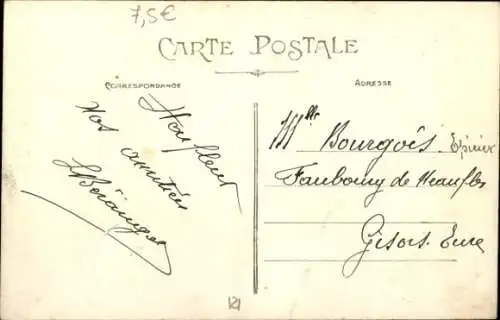 7,5€
CARTE POSTALE
CORRESPONDANCE
ADRESSE
Honfleur
Nos amitiés
LBérenger
Mlle Bourgois Epicier
Faubourg de Neaufles
Gisors. Eure
121